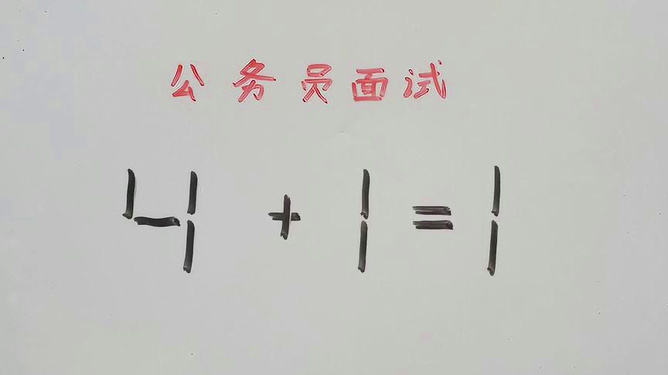 公务员面试
4+1=1